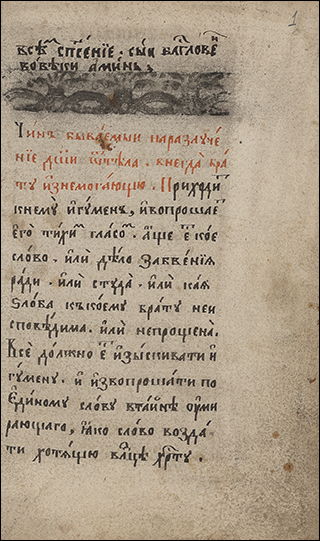 1
всѣм̾ спс҃еніе · сыи блг҃слове́н
вовѣки аминь,
Чинъ быва́емыи наразлуче́
ніе дш҃и ѿтѣла · внегда̀ бра́
ту изнемога́ющю · Приходи́т
кнему̀ игу́менъ, ивопроша́е
его̀ ти́хим гла́сом · а́ще е҆ кое
слово · или дѣ́ло забве́нїѧ
ра́ди · илѝ студа̀ · илѝ ка́ѧ
ѕло́ба къко́ему бра́ту неи
спове́дима · илѝ непроще́на̀ ·
Всѐ до́лжно е҆ изы́скивати и
гу́мену · и извопроша́ти по
Еди́ному сло́ву вта́йнѣ оуми
ра́ющаго, ꙗ҆́ко сло́во возда́
ти хотѧ́щю вл҃це хр҃ту ·